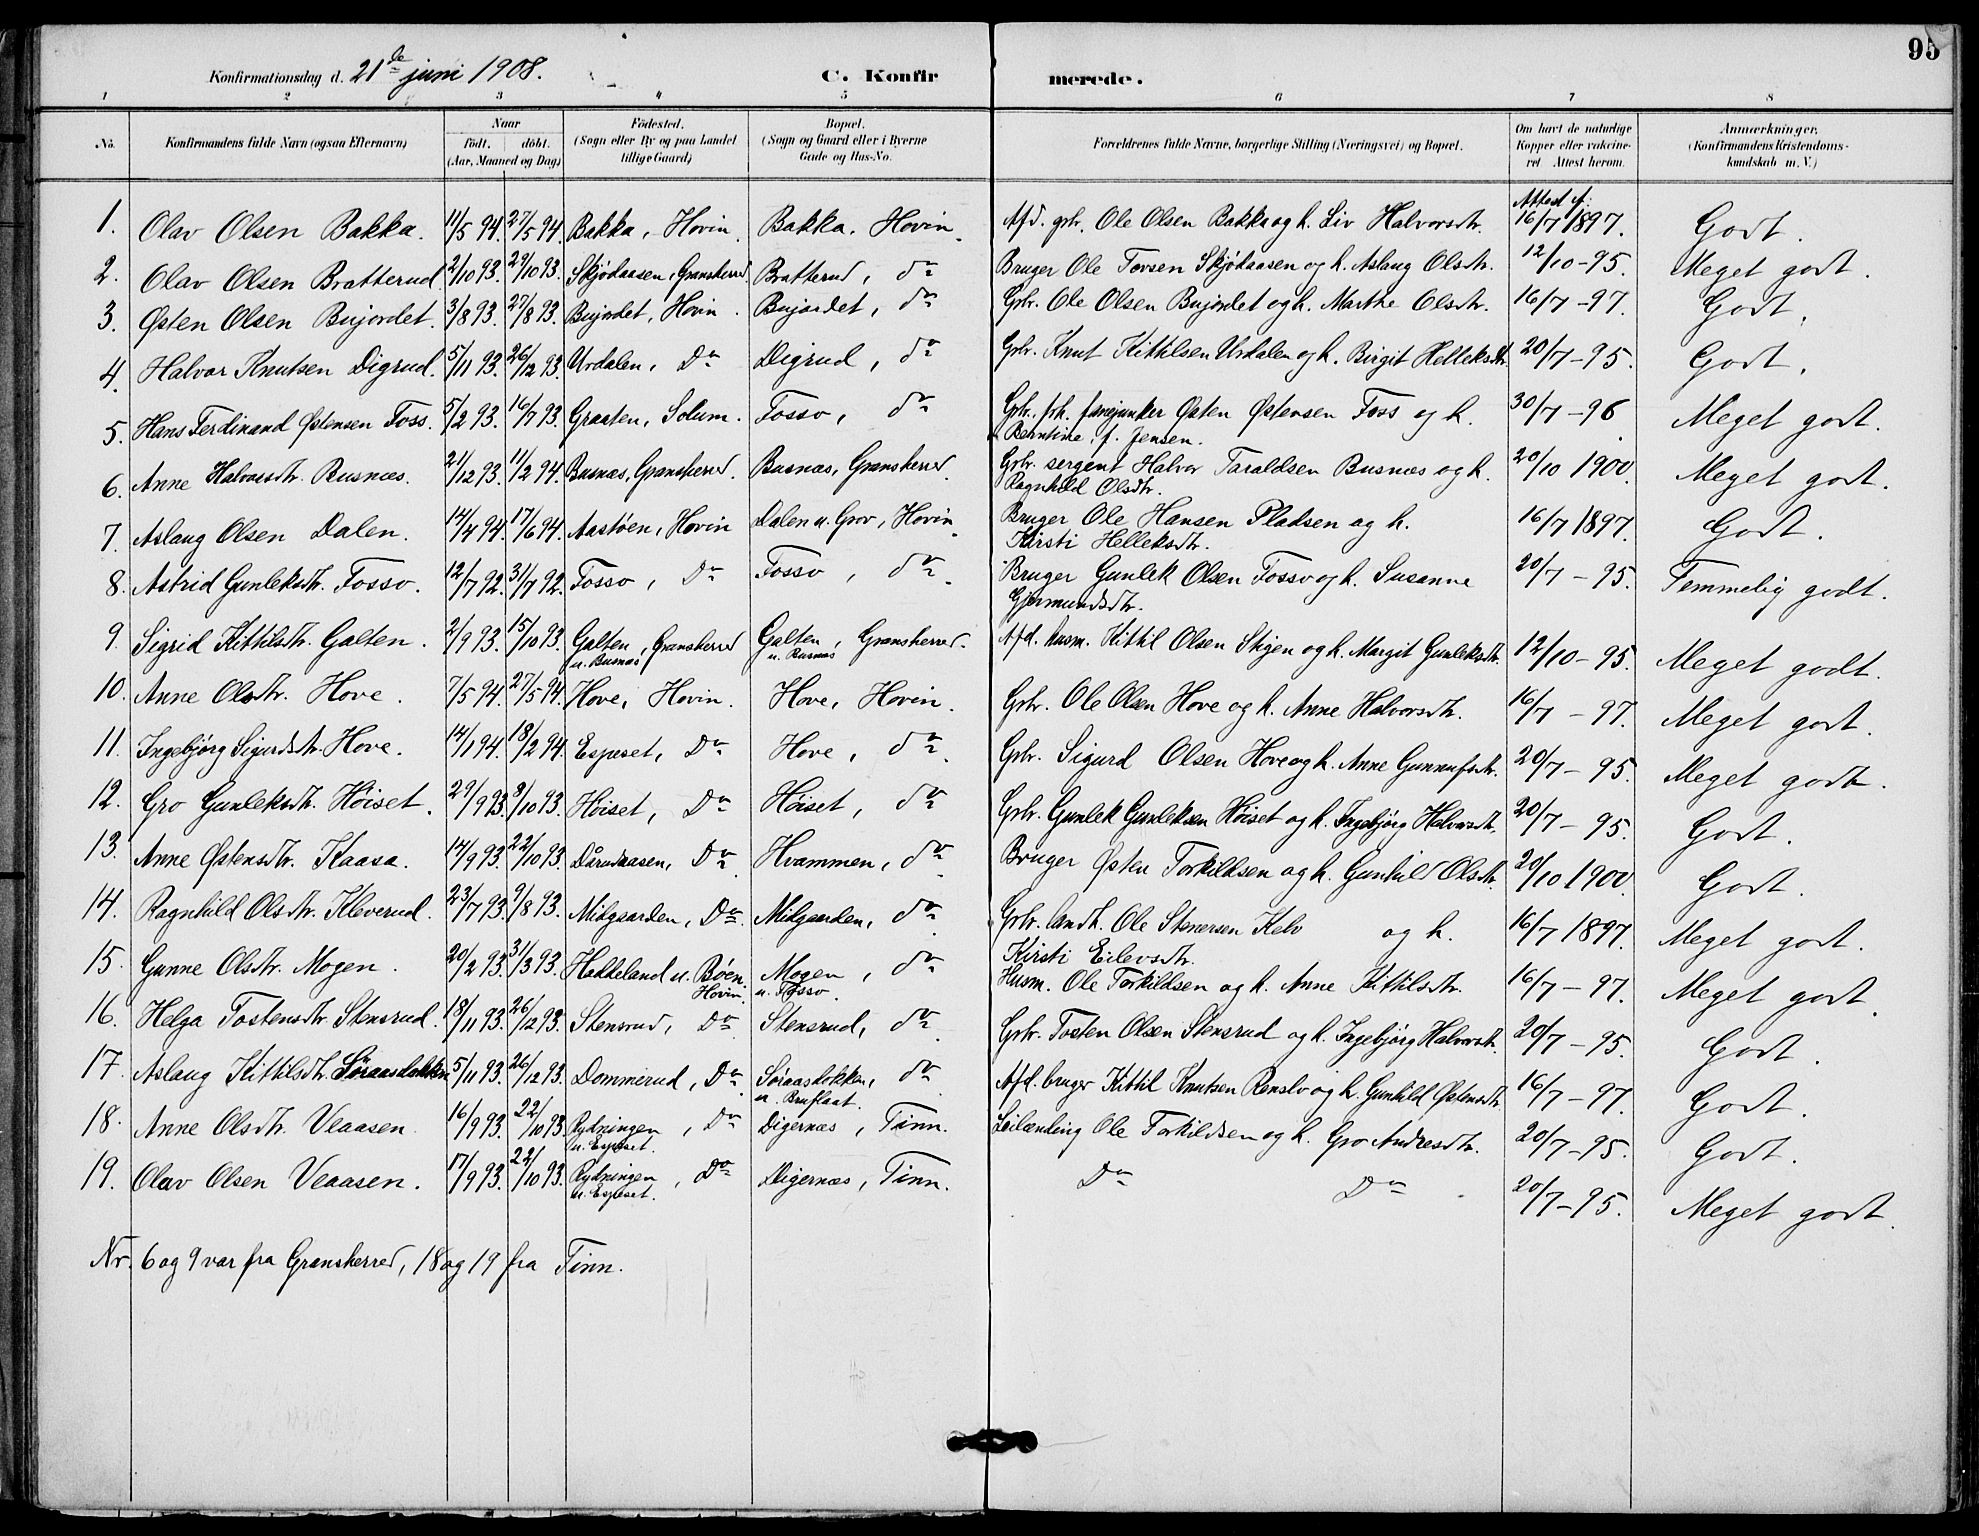 95
Konfirmationsdag d. 21de juni 1908. C. Konfirmerede.
1 2 3 4 5 6 7 8
No. Konfirmandens fulde Navn (ogsaa Efternavn) Naar født. døbt. (Aar, Maaned og Dag) Fødested. (Sogn eller By og paa Landet tillige Gaard) Bopæl. (Sogn og Gaard eller i Byerne Gade og Hus-No. Forældrenes fulde Navne, borgerlige Stilling (Næringsvei) og Bopæl. Om havt de naturlige Kopper eller vaccineret Attest herom. Anmærkninger. (Konfirmandens Kristendomskundskab m. V.)
1. Olav Olsen Bakka. 11/5 94. 27/5 94. Bakka, Hovin. Bakka, Hovin. Afd. gbr. Ole Olsen Bakka og h. Liv Halvorsdtr. Attest af: 16/7 1897. Godt.
2. Olav Olsen Bratterud 2/10 93. 29/10 93. Skjødaasen, Gransherred. Bratterud, do Bruger Ole Tovsen Skjødaasen og h. Aslaug Olsdtr. 12/10-95. Meget godt.
3. Østen Olsen Bujordet. 3/8 93. 27/8 93. Bujordet, Hovin. Bujordet, do Gbr. Ole Olsen Bujordet og h. Marthe Olsdtr. 16/7-97. Godt.
4. Halvor Knutsen Digrud. 5/11 93. 26/12 93. Urdalen, Do Digrud, do Gbr. Knut Kittilsen Urdalen og h. Birgit Helleksdtr. 20/7-95. Godt.
5. Hans Ferdinand Østensen Foss. 5/2 93. 16/7 93. Graaten, Solum. Fosso, do Gbr. frh. fanejunker Østen Østensen Foss og h.
Berntine, f. Jensen. 30/7-96 Meget godt.
6. Anne Halvorsdtr. Busnæs. 21/12 93. 11/2 94. Busnæs, Gransherred. Busnæs, Gransherred. Gbr. sergent Halvor Taraldsen Busnæs og h.
Ragnhild Olsdtr. 20/10 1900. Meget godt.
7. Aslaug Olsen Dalen. 14/4 94. 17/6 94. Aastøen, Hovin Dalen u. Grov, Hovin. Bruger Ole Hansen Pladsen og h.
Kirsti Helleksdtr. 16/7 1897. Godt.
8. Astrid Gunleksdtr. Fosso. 12/7 92. 31/7 92. Fosso, Do Fosso, do Bruger Gunlek Olsen Fosso og h. Susanne
Gjermundsdtr. 20/7-95. Temmelig godt.
9. Sigrid Kittilsdtr. Galten. 2/9 93. 15/10 93. Galten, Gransherred Galten, Gransherred. Afd. husm. Kittil Olsen Stigen og h. Margit Gunleksdtr. 12/10-95. Meget godt.
u. Busnæs u. Busnæs
10. Anne Olsdtr. Hove. 7/5 94. 27/5 94. Hove, Hovin. Hove, Hovin. Gbr. Ole Olsen Hove og h. Anne Halvorsdtr. 16/7-97. Meget godt.
11. Ingebjørg Sigurdsdtr. Hove. 14/1 94. 18/2 94. Espeset, Do Hove, do Gbr. Sigurd Olsen Hove og h. Anne Gunnufsdtr. 20/7-95. Meget godt.
12. Gro Gunleksdtr. Høiset. 29/9 93. 3/10 93. Høiset, Do Høiset, do Gbr. Gunlek Gunleksen Høiset og h. Ingebjørg Halvorsdtr. 20/7-95. Godt.
13. Anne Østensdtr. Kaasa. 14/9 93. 22/10 93. Dårudaasen, Do Hvammen, do Bruger Østen Torkildsen og h. Gunhild Olsdtr. 20/10 1900. Godt.
14. Ragnhild Olsdtr. Kleverud. 23/7 93. 9/8 93. Midgaarden, Do Midgaarden, do Gbr. landh. Ole Stenersen Kelv og h.
Kirsti Eilevsdtr. 16/7 1897. Meget godt.
15. Gunne Olsdtr. Mogen. 20/2 93. 31/3 93. Haddeland u. Bøen. Mogen, do Husm. Ole Torkildsen og h. Anne Kittilsdtr. 16/7-97. Meget godt
Hovin u. Fosso.
16. Helga Tostensdtr. Stensrud. 18/11 93. 26/12 93. Stensrud, Do Stensrud, do Gbr. Tosten Olsen Stensrud og h. Ingebjørg Halvorsdtr. 20/7-95. Godt.
17. Aslaug Kittilsdtr. Søraasdokken 5/11 93. 26/12 93. Dommerud, Do Søraasdokken, do Afd. bruger Kittil Knutsen Renslo og h. Gunhild Østensdtr. 16/7-97. Godt.
u. Bruflaat.
18. Anne Olsdtr. Veaasen. 16/9 93. 22/10 93. Rydningen, Do Digernæs, Tinn. Leilænding Ole Torkildsen og h. Gro Andresdtr. 20/7-95. Godt.
u. Espeset.
19. Olav Olsen Veaasen. 17/9 93. 22/10 93. Rydningen, Do Digernæs, Tinn. Do Do 20/7-95. Meget godt.
u. Espeset.
Nr. 6 og 9 var fra Gransherred, 18 og 19 fra Tinn.